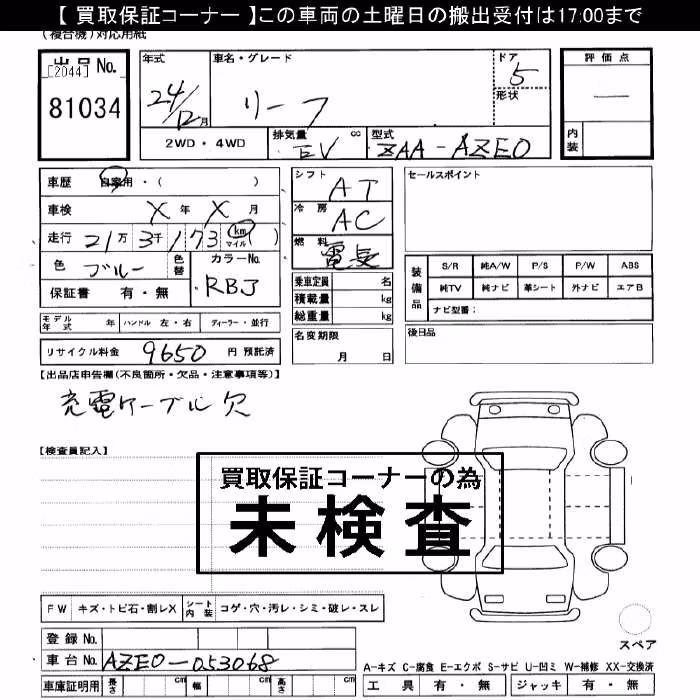 【 買取保証コーナー 】この車両の土曜日の搬出受付は17:00まで
(複合機)対応用紙
出品 No.
[2044]
81034
年式
24/12月
車名・グレード
リーフ
ドア
5
形状
評価点
—
内装
2WD・4WD
排気量 cc
EV
型式
ZAA-AZEO
車歴 自家用・( )
車検 X 年 X 月
走行 21万 3千173 km マイル ( )
色 ブルー 色替
カラーNo.
RBJ
保証書 有・無
シフト
AT
冷房
AC
燃料
電気
乗車定員 名
積載量 kg
総重量 kg
セールスポイント
装備品
S/R 純A/W P/S P/W ABS
純TV 純ナビ 革シート 外ナビ エアB
ナビ型番:
モデル年式 年 ハンドル 左・右 ディーラー・並行
名変期限
月 日
後日品
リサイクル料金 9650 円 預託済
【出品店申告欄(不良箇所・欠品・注意事項等)】
充電ケーブル欠
【検査員記入】
買取保証コーナーの為
未検査
FW キズ・トビ石・割レX シート内装 コゲ・穴・汚レ・シミ・破レ・スレ
登録 No.
車台 No. AZEO-053068
車庫証明用 長さ cm 幅 cm 高さ cm
スペア
A-キズ C-腐食 E-エクボ S-サビ U-凹ミ W-補修 XX-交換済
工具 有・無 ジャッキ 有・無